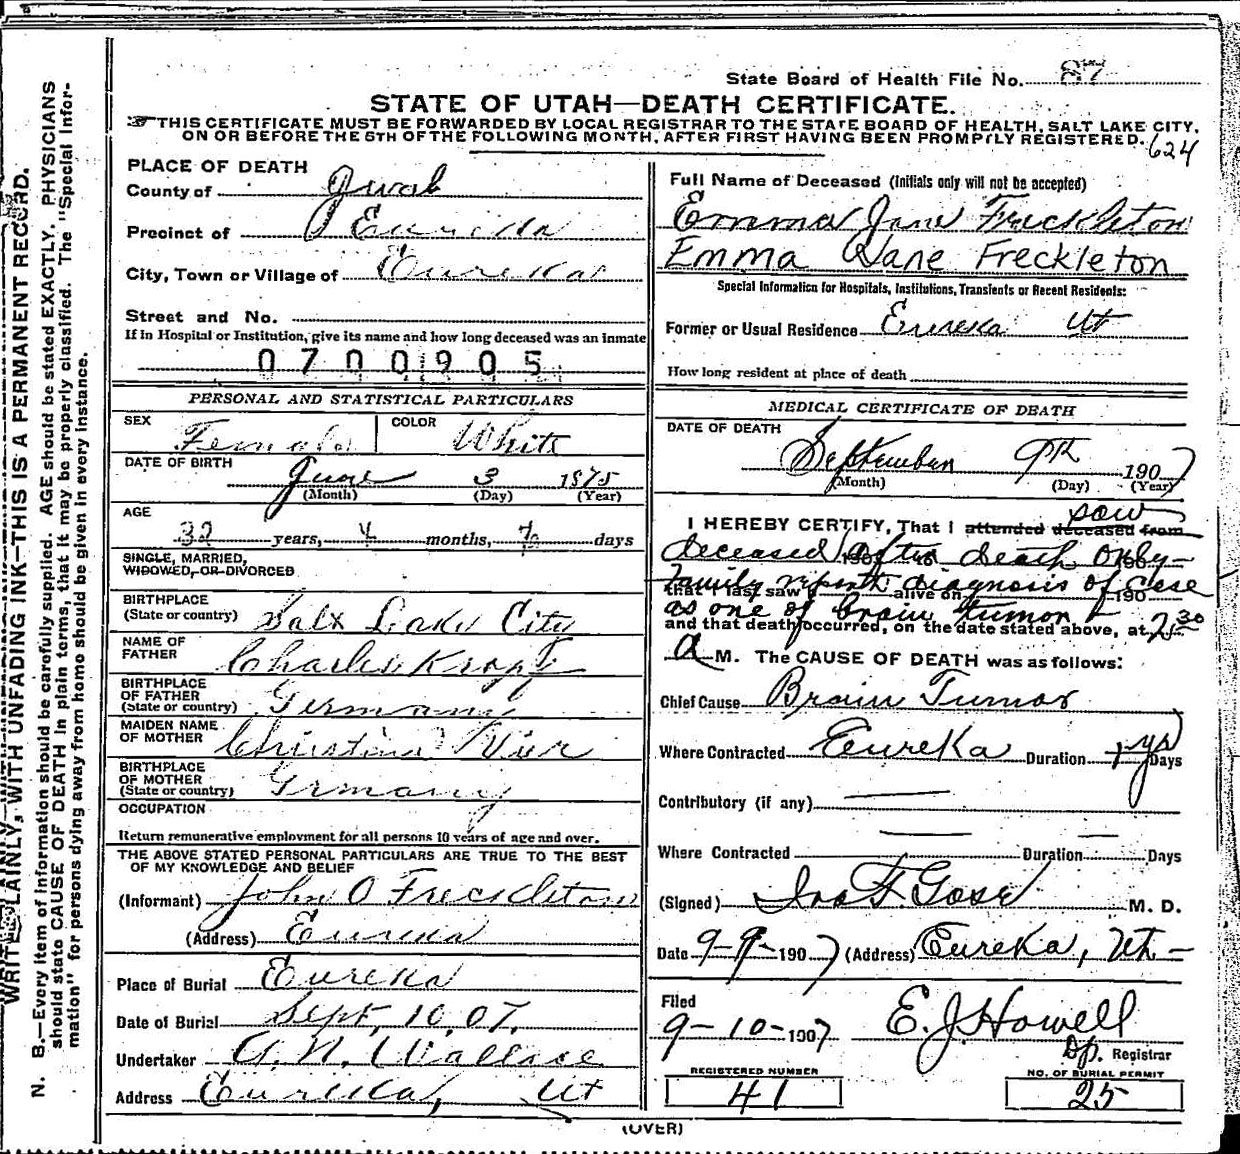 State Board of Health File No. 87
STATE OF UTAH—DEATH CERTIFICATE.
THIS CERTIFICATE MUST BE FORWARDED BY LOCAL REGISTRAR TO THE STATE BOARD OF HEALTH, SALT LAKE CITY,
ON OR BEFORE THE 5TH OF THE FOLLOWING MONTH, AFTER FIRST HAVING BEEN PROMPTLY REGISTERED.
624
PLACE OF DEATH
County of Juab
Precinct of Eureka
City, Town or Village of Eureka
Street and No.
If in Hospital or Institution, give its name and how long deceased was an inmate
0700905
PERSONAL AND STATISTICAL PARTICULARS
SEX Female COLOR White
DATE OF BIRTH June 3 1875
(Month) (Day) (Year)
AGE
32 years, 4 months, 7 days
SINGLE, MARRIED,
WIDOWED, OR DIVORCED
BIRTHPLACE
(State or country) Salt Lake City
NAME OF
FATHER Charles Kropf
BIRTHPLACE
OF FATHER
(State or country) Germany
MAIDEN NAME
OF MOTHER Christina Vier
BIRTHPLACE
OF MOTHER
(State or country) Grmany
OCCUPATION
Return remunerative employment for all persons 10 years of age and over.
THE ABOVE STATED PERSONAL PARTICULARS ARE TRUE TO THE BEST
OF MY KNOWLEDGE AND BELIEF
(Informant) John O Freckleton
(Address) Eureka
Place of Burial Eureka
Date of Burial Sept. 10, 07.
Undertaker A. N. Wallace
Address Eureka, Ut
Full Name of Deceased (Initials only will not be accepted)
Emma Jane Freckleton
Emma Jane Freckleton
Special Information for Hospitals, Institutions, Transients or Recent Residents:
Former or Usual Residence Eureka Ut
How long resident at place of death
MEDICAL CERTIFICATE OF DEATH
DATE OF DEATH
September 9th 1907
(Month) (Day) (Year)
saw
I HEREBY CERTIFY, That I attended deceased from
deceased after death only—
family reports diagnosis of case
that I last saw alive on 190
as one of brain tumor
and that death occurred, on the date stated above, at 2 30
A M. The CAUSE OF DEATH was as follows:
Chief Cause Brain Tumor
Where Contracted Eureka Duration 1 yr Days
Contributory (if any)
Where Contracted Duration Days
(Signed) F. Gose M. D.
Date 9-9-1907 (Address) Eureka, Ut-
Filed
9-10-1907 E. J. Howell
Dp. Registrar
REGISTERED NUMBER
41
NO. OF BURIAL PERMIT
25
(OVER)
WRITE PLAINLY, WITH UNFADING INK—THIS IS A PERMANENT RECORD.
N. B.—Every item of information should be carefully supplied. AGE should be stated EXACTLY. PHYSICIANS
should state CAUSE OF DEATH in plain terms, that it may be properly classified. The "Special Infor-
mation" for persons dying away from home should be given in every instance.